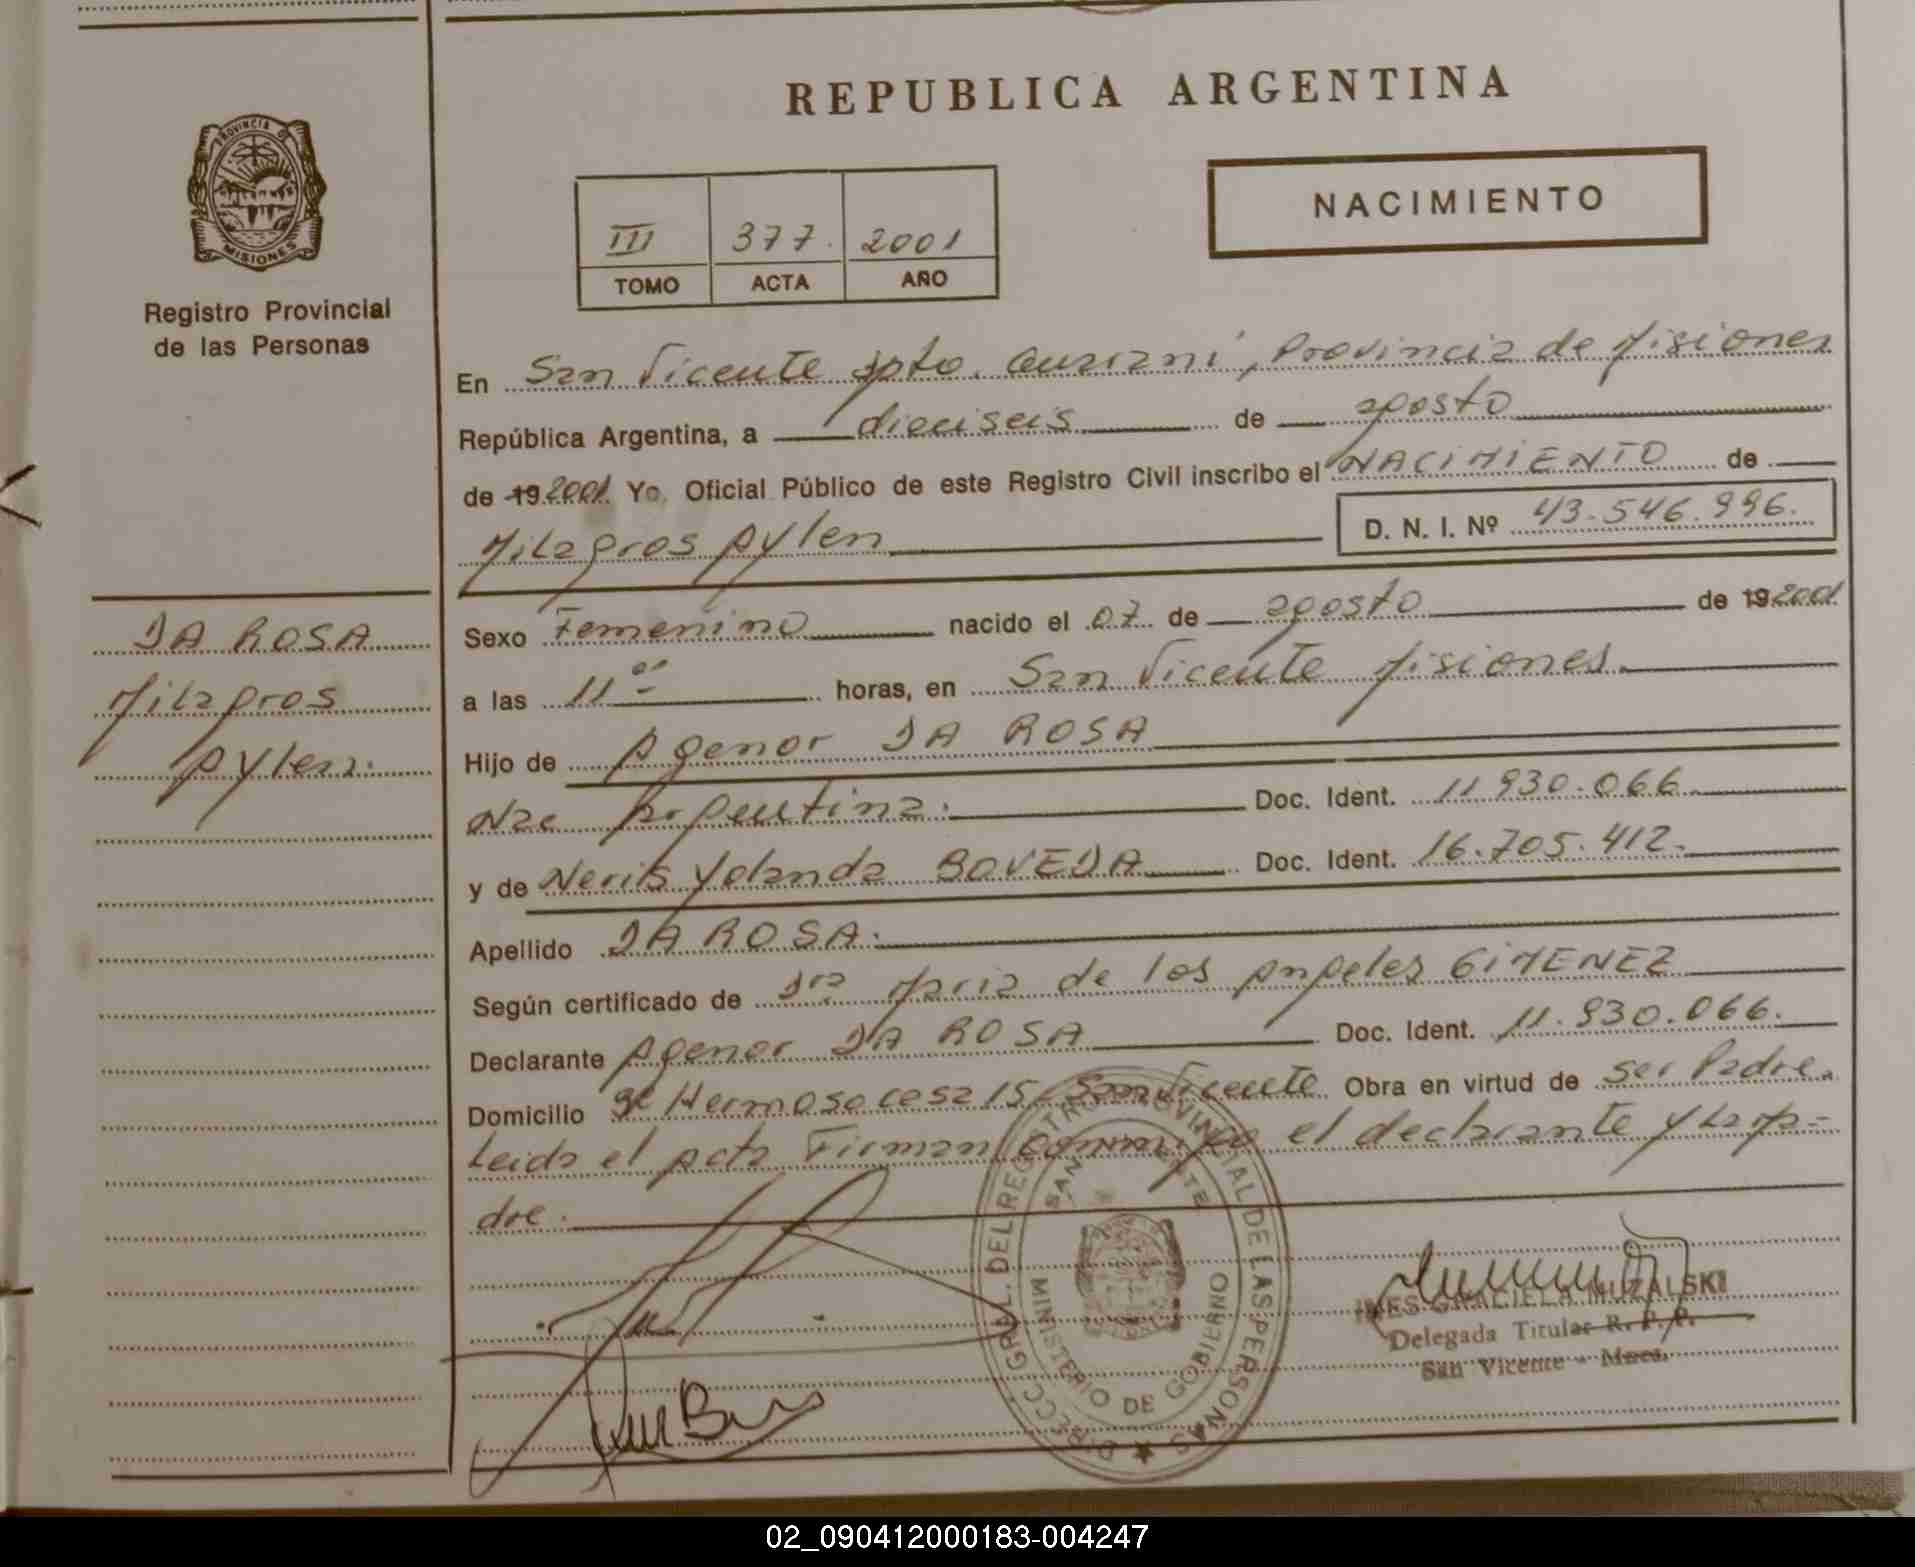 REPUBLICA ARGENTINA
PROVINCIA DE
MISIONES
Registro Provincial
de las Personas
III 377. 2001
TOMO ACTA AÑO
NACIMIENTO
En San Vicente Dpto. Guarani, Provincia de Misiones
República Argentina, a dieciseis de agosto
de 19 2001. Yo, Oficial Público de este Registro Civil inscribo el NACIMIENTO de
Milagros Aylen D. N. I. Nº 43.546.996.
DA ROSA
Milagros
Aylen.
Sexo Femenino nacido el 07 de agosto de 19 2001
a las 11 00 horas, en San Vicente Misiones
Hijo de Agenor DA ROSA
Nac Argentina. Doc. Ident. 11.930.066
y de Neris Yolanda BOVEDA Doc. Ident. 16.705.412.
Apellido DA ROSA.
Según certificado de Dra Maria de los Angeles GIMENEZ
Declarante Agenor DA ROSA Doc. Ident. 11.930.066.
Domicilio Bº Hermoso casa 15 San Vicente Obra en virtud de ser Padre.
Leida el acta Firman conmigo el declarante y la Ma=
dre.
DIRECC. GRAL. DEL REGISTRO PROVINCIAL DE LAS PERSONAS
SAN VICENTE
MINISTERIO DE GOBIERNO
INES GRACIELA MUZALSKI
Delegada Titular R. P. P.
San Vicente - Mnes.
02_090412000183-004247